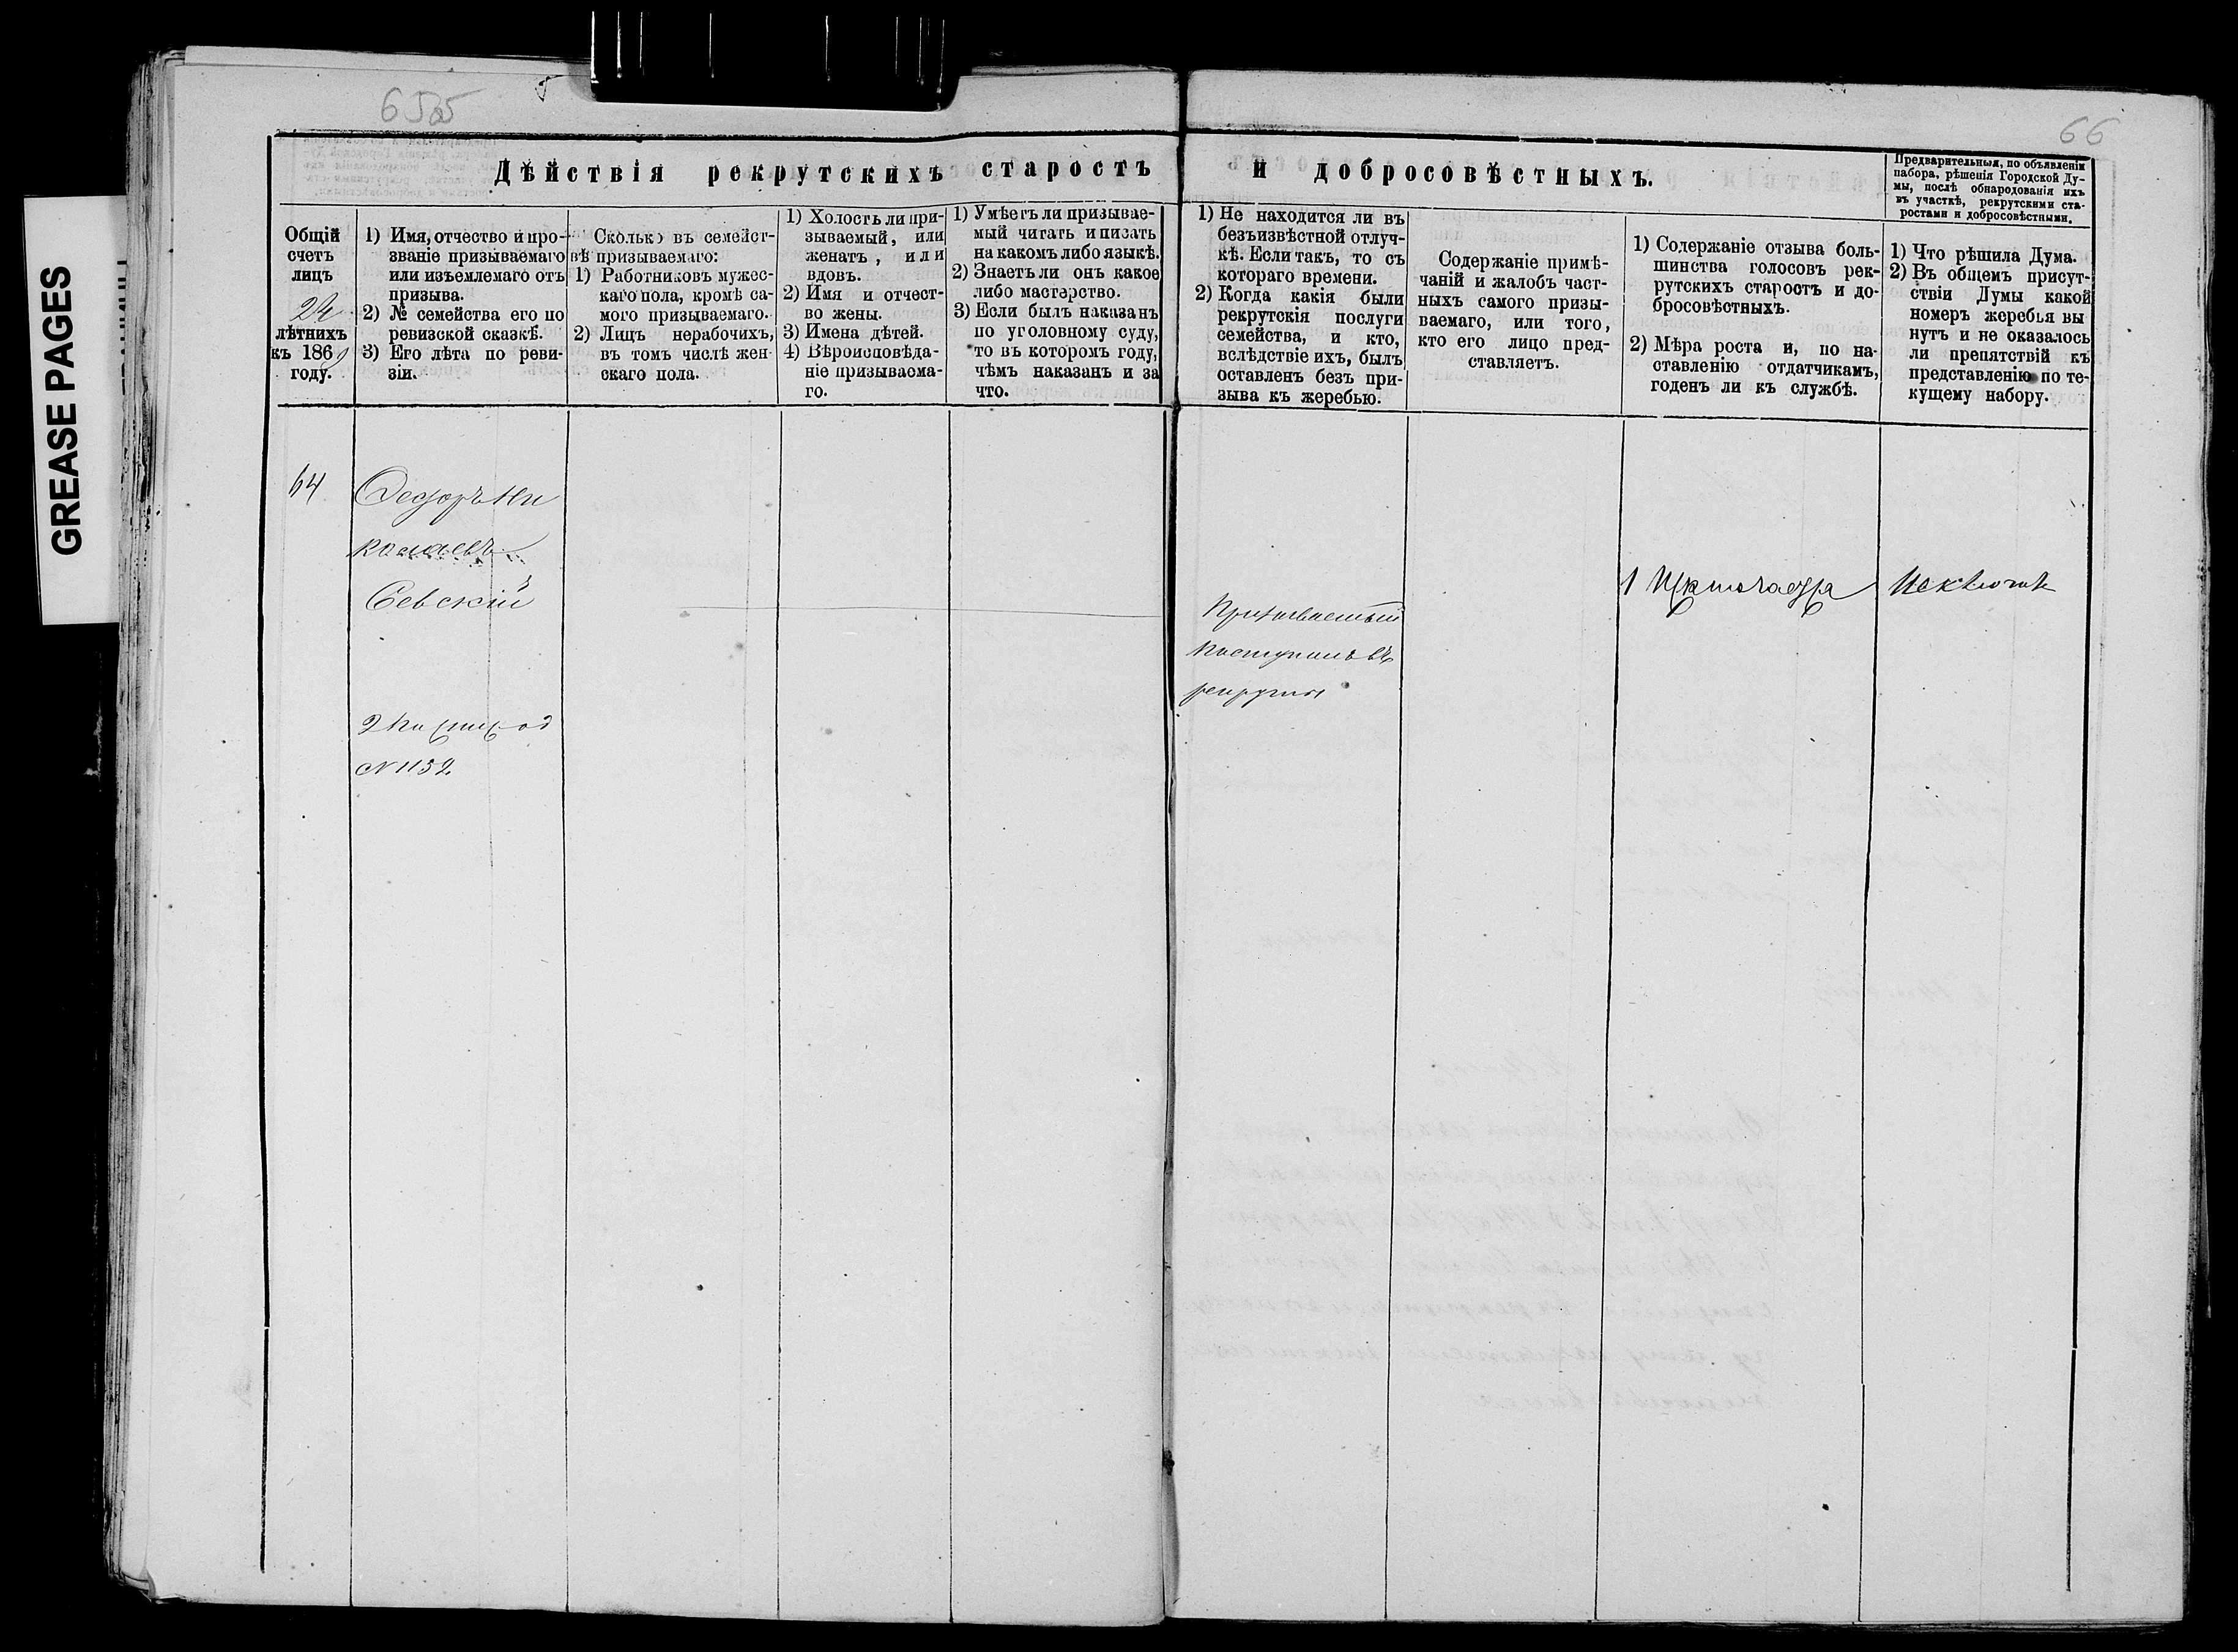 GREASE PAGES
66
Дѣйствія рекрутскихъ старостъ и добросовѣстныхъ.
Предварительныя, по объявленіи
набора, рѣшенія Городской Ду-
мы, послѣ обнародованія ихъ
въ участкѣ, рекрутскими ста-
ростами и добросовѣстными.
Общій
счетъ
лицъ
лѣтнихъ
къ 186
году.
1) Имя, отчество и про-
званіе призываемаго
или изъемлемаго отъ
призыва.
2) № семейства его по
ревизской сказкѣ.
3) Его лѣта по реви-
зіи.
Сколько въ семейст-
вѣ призываемаго:
1) Работниковъ мужес-
каго пола, кромѣ са-
мого призываемаго.
2) Лицъ нерабочихъ,
въ томъ числѣ жен-
скаго пола.
1) Холостъ ли при-
зываемый, или
женатъ, или
вдовъ.
2) Имя и отчест-
во жены.
3) Имена дѣтей.
4) Вѣроисповѣда-
ніе призываема-
го.
1) Умѣетъ ли призывае-
мый читать и писать
на какомъ либо языкѣ.
2) Знаетъ ли онъ какое
либо мастерство.
3) Если былъ наказанъ
по уголовному суду,
то въ которомъ году,
чѣмъ наказанъ и за
что.
1) Не находится ли въ
безъизвѣстной отлуч-
кѣ. Если такъ, то съ
котораго времени.
2) Когда какія были
рекрутскія послуги
семейства, и кто,
вслѣдствіе ихъ, былъ
оставленъ безъ при-
зыва къ жеребью.
Содержаніе примѣ-
чаній и жалобъ част-
ныхъ самого призы-
ваемаго, или того,
кто его лицо пред-
ставляетъ.
1) Содержаніе отзыва боль-
шинства голосовъ рек-
рутскихъ старостъ и до-
бросовѣстныхъ.
2) Мѣра роста и, по на-
ставленію отдатчикамъ,
годенъ ли къ службѣ.
1) Что рѣшила Дума.
2) Въ общемъ присут-
ствіи Думы какой
номеръ жеребья вы
нутъ и не оказалось
ли препятствій къ
представленію по те-
кущему набору.
64
Федоръ Ни
колаевъ
Севскій
№ 1152
Призываемый
поступилъ въ
рекруты
1
Исключить